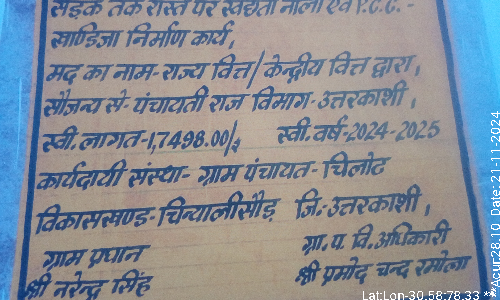 सड़क तक रास्ते पर स्वछता नाला एवं P.C.C.-
खाण्डिजा निर्माण कार्य,
मद का नाम- राज्य वित्त/केन्द्रीय वित्त द्वारा,
सौजन्य से- पंचायती राज विभाग- उत्तरकाशी,
स्वी. लागत-1,7498.00/, स्वी. वर्ष-2024-2025
कार्यदायी संस्था- ग्राम पंचायत- चिलोट
विकासखण्ड- चिन्यालीसौड़ जि.- उत्तरकाशी,
ग्राम प्रधान ग्रा.प. वि. अधिकारी
श्री नरेन्द्र सिंह श्री प्रमोद चन्द रमोला
Date: 21-11-2024
LatLon-30.58:78.33